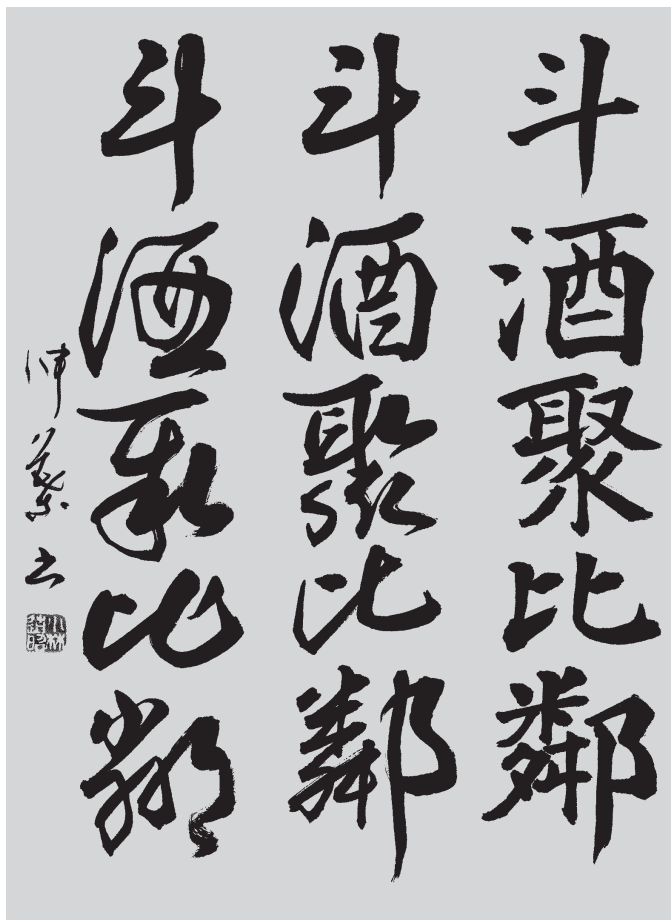 斗酒聚比鄰
斗酒聚比鄰
斗酒聚比鄰
書
小林